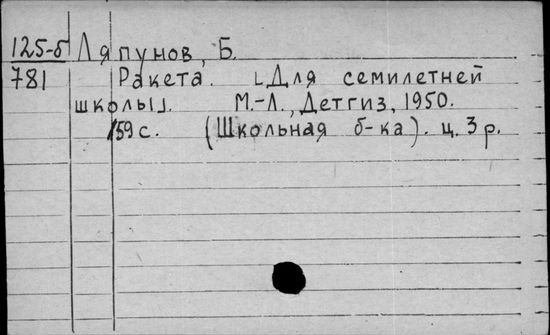 125-б Ляпунов, Б.
781 Ракета. [Для семилетней
школы]. М.-Л., Детгиз, 1950.
159 с. (Школьная б-ка). ц. 3 р.